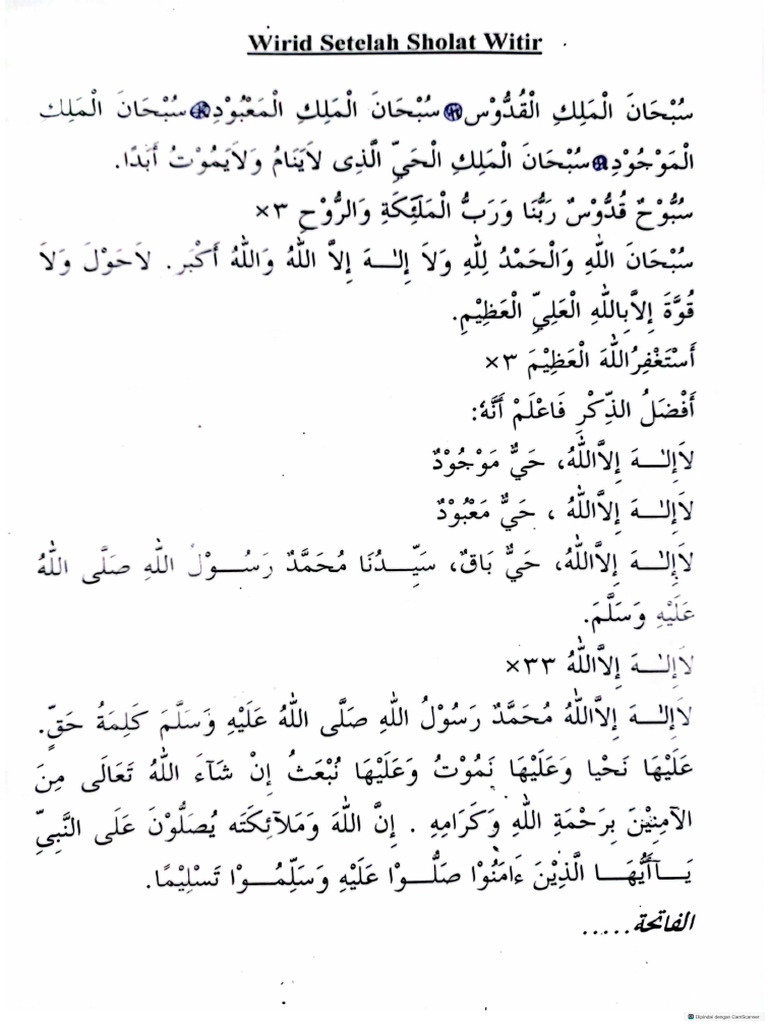 Wirid Setelah Sholat Witir
سُبْحَانَ الْمَلِكِ الْقُدُّوْسِ سُبْحَانَ الْمَلِكِ الْمَعْبُوْدِ سُبْحَانَ الْمَلِكِ
الْمَوْجُوْدِ سُبْحَانَ الْمَلِكِ الْحَيِّ الَّذِى لاَيَنَامُ وَلاَيَمُوْتُ أَبَدًا.
سُبُّوْحٌ قُدُّوْسٌ رَبُّنَا وَرَبُّ الْمَلَٓئِكَةِ وَالرُّوْحِ ٣×
سُبْحَانَ اللهِ وَالْحَمْدُ لِلّٰهِ وَلاَ إِلـٰـهَ إِلاَّ اللهُ وَاللهُ أَكْبَر. لاَحَوْلَ وَلاَ
قُوَّةَ إِلاَّبِاللهِ الْعَلِيِّ الْعَظِيْمِ.
أَسْتَغْفِرُاللهَ الْعَظِيْمَ ٣×
أَفْضَلُ الذِّكْرِ فَاعْلَمْ أَنَّهُ:
لاَإِلـٰـهَ إِلاَّاللهُ، حَيٌّ مَوْجُوْدٌ
لاَإِلـٰـهَ إِلاَّاللهُ ، حَيٌّ مَعْبُوْدٌ
لاَإِلـٰـهَ إِلاَّاللهُ، حَيٌّ بَاقٌ، سَيِّـدُنَا مُحَمَّدٌ رَسُـوْلُ اللهِ صَلَّى اللهُ
عَلَيْهِ وَسَلَّمَ.
لاَإِلـٰـهَ إِلاَّاللهُ ٣٣×
لاَإِلـٰـهَ إِلاَّاللهُ مُحَمَّدٌ رَسُوْلُ اللهِ صَلَّى اللهُ عَلَيْهِ وَسَلَّمَ كَلِمَةُ حَقٍّ.
عَلَيْهَا نَحْيا وَعَلَيْهَا نَمُوْتُ وَعَلَيْهَا نُبْعَثُ إِنْ شَآءَ اللهُ تَعَالَى مِنَ
الآمِنِيْنَ بِرَحْمَةِ اللهِ وَكَرَامِهِ . إِنَّ اللهَ وَمَلآئِكَتَه يُصَلُّوْنَ عَلَى النَّبِيِّ
يَـآأَيُّهَـا الَّذِيْنَ ءَامَنُوْا صَلُّـوْا عَلَيْهِ وَسَلِّمُـوْا تَسْلِيْمًا.
الفاتحة.....
Dipindai dengan CamScanner